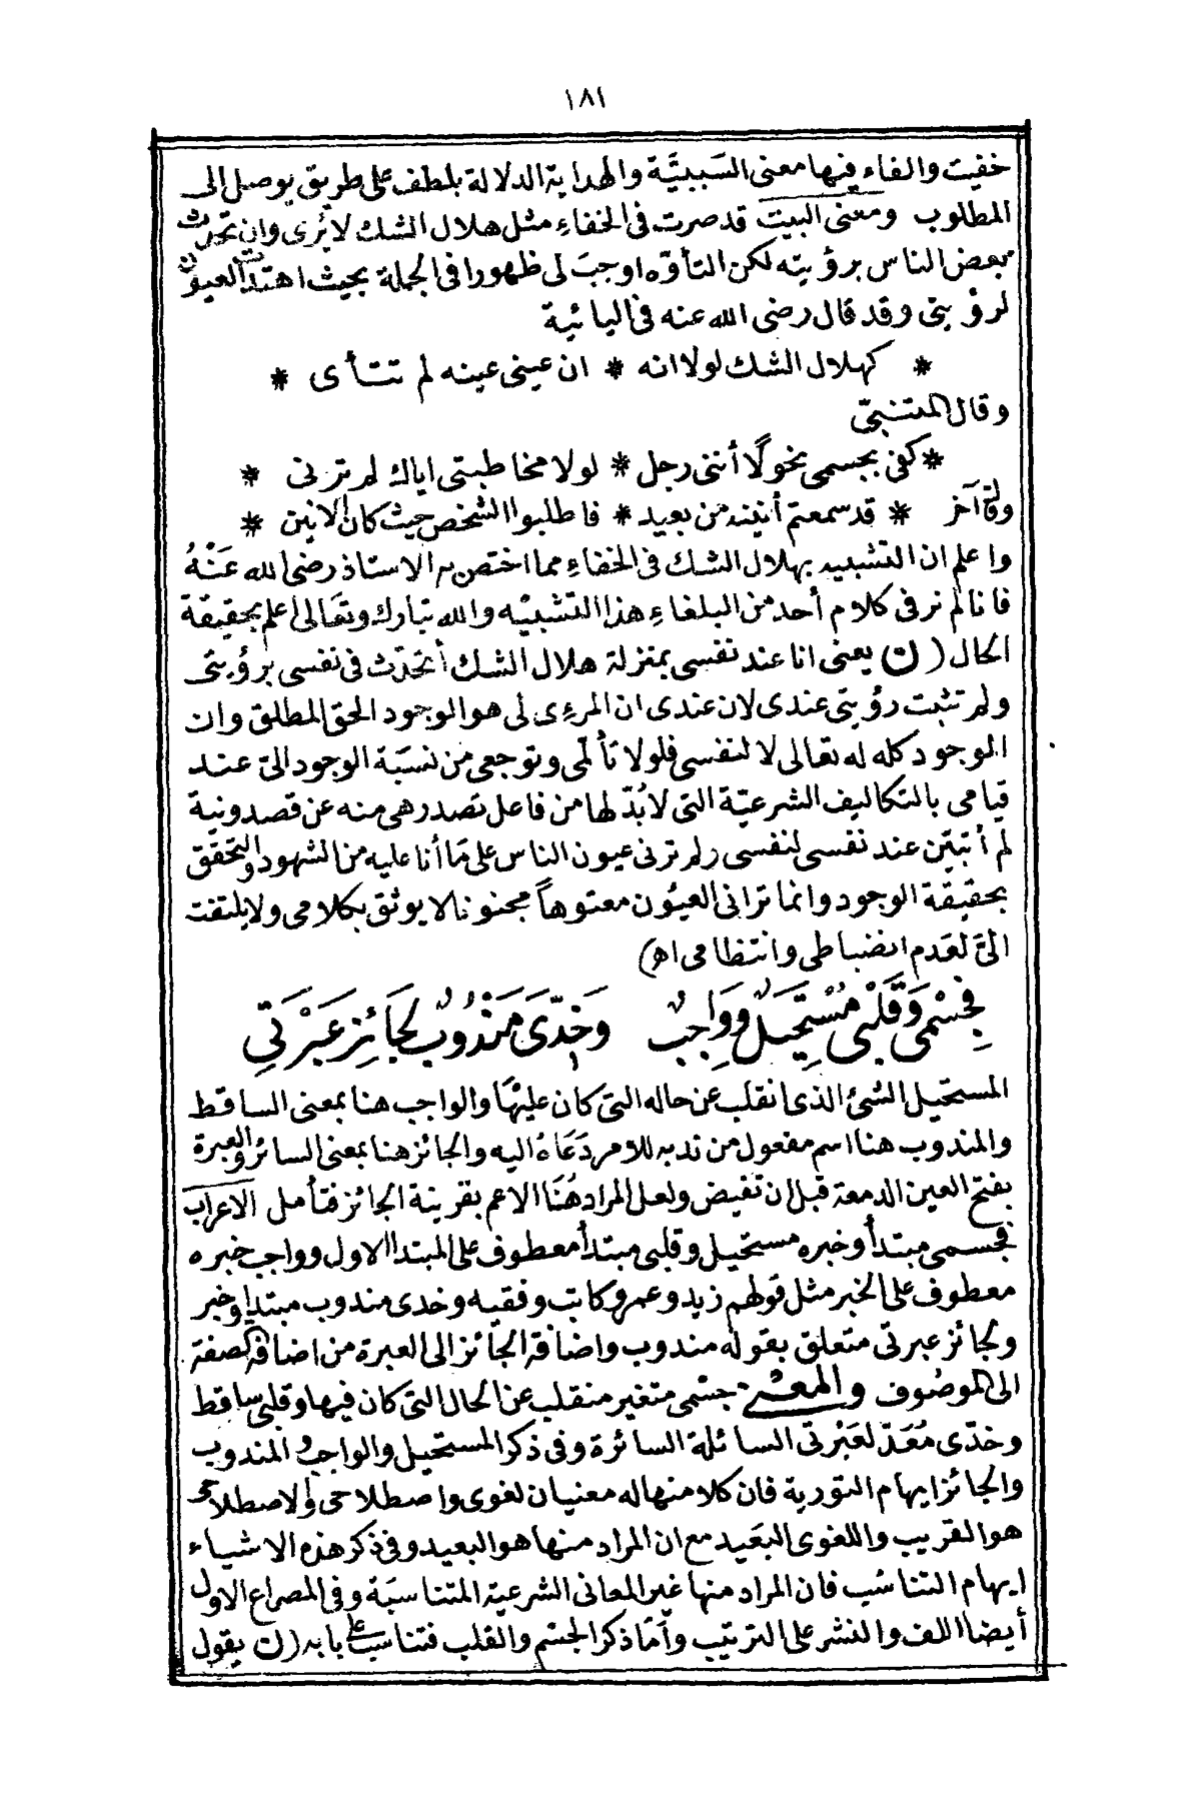 ١٨١
خفيت والفاء فيها معنى السَببيَّة والهداية الدلالة بلطف على طريق يوصل الى
المطلوب ومعنى البيت قد صرت فى الخفاءِ مثل هلال الشك لا يُرى وان تحدث
بعض الناس برؤيته لكن التأوّه اوجبَ لى ظهورا فى الجملة بحيث اهتدت العيون
لرؤيتى وقد قال رضى الله عنه فى اليائية
* كهلال الشك لولا انه * ان عينى عينه لم تتأى *
وقال المتنبىّ
* كفى بجسمى نحولًا أننى رجل * لولا مخاطبتى اياك لم ترنى *
وقال آخر * قد سمعتم أنينه من بعيد * فاطلبوا الشخص حيث كان الانين *
واعلم ان التشبيه بهلال الشك فى الخفاءِ مما اختص به الاستاذ رضى الله عَنْهُ
فانا لم نر فى كلام أحد من البلغاءِ هذا التشبيْه والله تبارك وتعَالى اعلم بحقيقة
الحال (ن يعنى انا عند نفسى بمنزلة هلال الشك أتحدّث فى نفسى برؤيتى
ولم تثبت رؤيتى عندى لان عندى ان المرءى لى هو الوجود الحق المطلق وان
الوجود كله له تعالى لا لنفسى فلولا تألمى وتوجعى من نسبَة الوجود الىّ عند
قيامى بالتكاليف الشرعيّة التى لا بُدّ لها من فاعل تصدر هى منه عن قصد ونية
لم أتبيّن عند نفسى لنفسى ولم ترنى عيون الناس على مَا أنا عليه من الشهود والتحقق
بحقيقة الوجود وانما ترانى العيُون معتوهاً مجنونا لا يوثق بكلامى ولا يلتفت
الىّ لعَدم انضباطى وانتظامى اهـ)
فَجِسْمِى وَقَلْبِى مُسْتَحِيلٌ وَوَاجِبٌ وَخَدِّىَ مَنْدُوبٌ لِجَائِزِ عَبْرَتِى
المستحيل الشئ الذى انقلب عن حاله التى كان عليْهَا والواجب هنا بمعنى الساقط
والمندوب هنا اسم مفعول من ندبه للامر دَعَاهُ اليه والجائز هنا بمعنى السائر والعبرة
بفتح العين الدمعة قبل ان تفيض ولعل المراد هُنَا الاعم بقرينة الجائز فتأمل الاعراب
فجسمى مبتدأ وخبره مستحيل وقلبى مبتدأ معطوف على المبتدا الاول وواجب خبره
معطوف على الخبر مثل قولهم زيد وعمرو كاتب وفقيه وخدى مندوب مبتدا وخبر
ولجائز عبرتى متعلق بقوله مندوب واضافة الجَائز الى العبرة من اضافة الصفة
الى الموصُوف والمعنى جسمى متغير منقلب عن الحال التى كان فيها وقلبى ساقط
وخدّى مُعَدّ لعَبْرتى السائلة السائرة وفى ذكر المستحيل والواجب والمندوب
والجائز ايهام التورية فان كلا منها له معنيان لغوى واصطلاحى والاصطلاحى
هو القريب واللغوى البعَيد مع ان المراد منها هو البعيد وفى ذكر هذه الاشياء
ايهام التناسُب فان المراد منها غير المعانى الشرعية المتناسبَة وفى المصراع الاول
أيضا اللف والنشر على الترتيب وأمّا ذكر الجسْم والقلب فتناسب على بابه (ن يقول